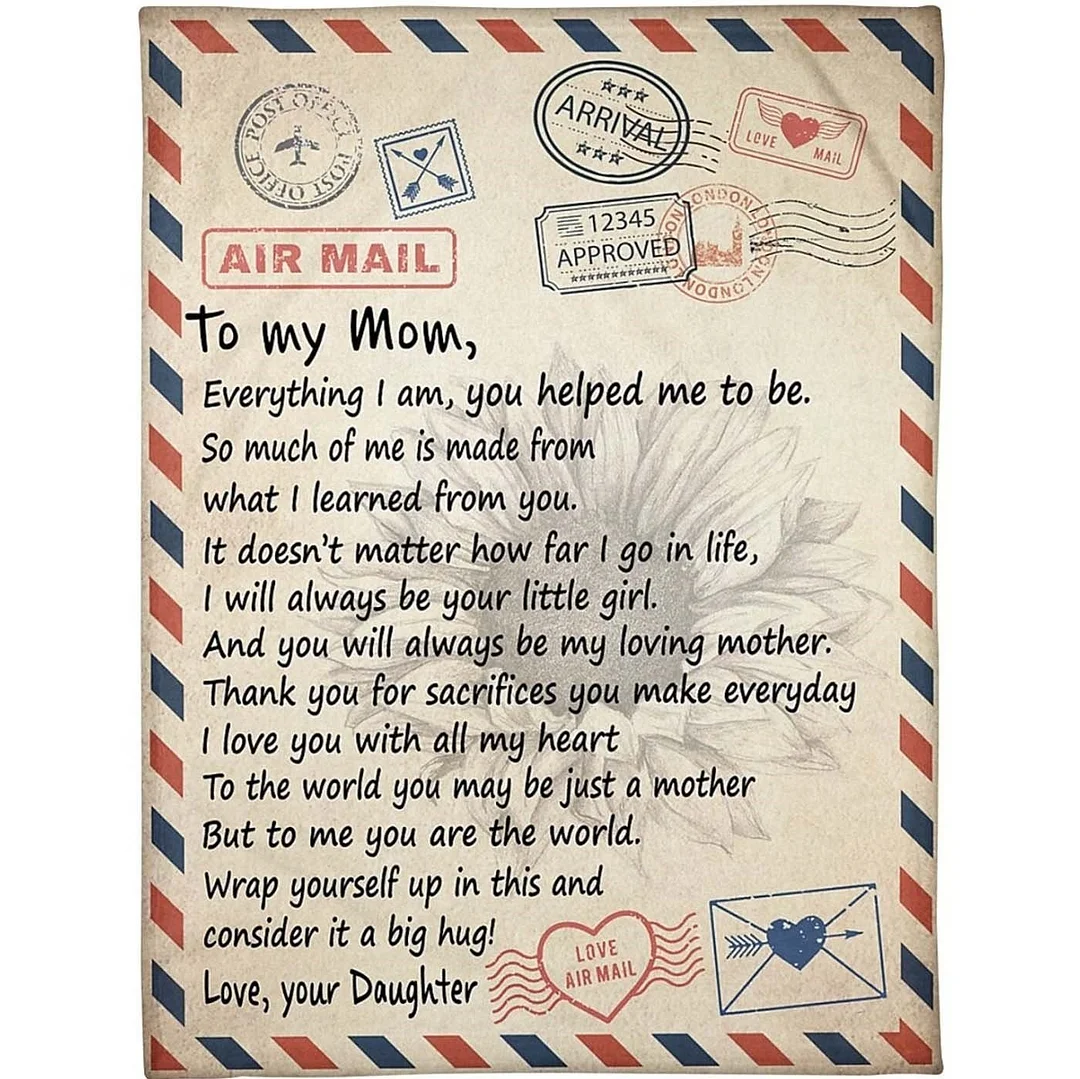 POST OFFICE POST OFFICE
ARRIVAL
LOVE MAIL
12345
APPROVED
LONDON LONDON LONDON LONDON
AIR MAIL
To my Mom,
Everything I am, you helped me to be.
So much of me is made from
what I learned from you.
It doesn't matter how far I go in life,
I will always be your little girl.
And you will always be my loving mother.
Thank you for sacrifices you make everyday
I love you with all my heart
To the world you may be just a mother
But to me you are the world.
Wrap yourself up in this and
consider it a big hug!
Love, your Daughter
LOVE
AIR MAIL